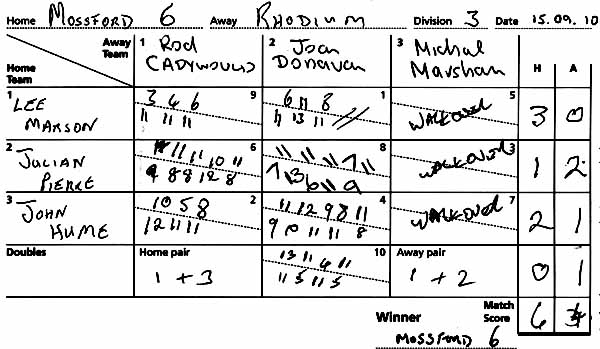 Home MOSSFORD 6 Away RHODIUM Division 3 Date 15.09.10
Away Team
Home Team
1 Rod
2 Joan Donavan
3 Michal Marshan
H A
1 LEE MARSON
9
3 4 6
11 11 11
1
6 11 8
11 13 11
5
WALKOVER
3 0
2 JULIAN PIERCE
6
11 11 10 11
9 8 8 12 8
8
11 11 7 11
3
WALKOVER
1 2
3 JOHN HUME
2
10 5 8
12 11 11
4
11 12 9 8 11
9 10 11 11 8
7
WALKOVER
2 1
Doubles
Home pair
1 + 3
10
13 11 6 11
11 5 11 5
Away pair
1 + 2
0 1
Winner
Match Score
6
MOSSFORD 6